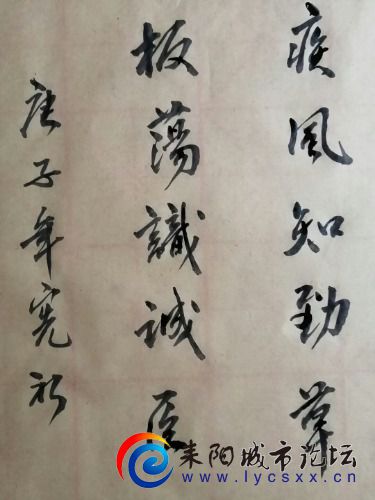 疾风知勁草
板蕩識誠臣
庚子年宪初
耒阳城市论坛
www.lycsxx.cn